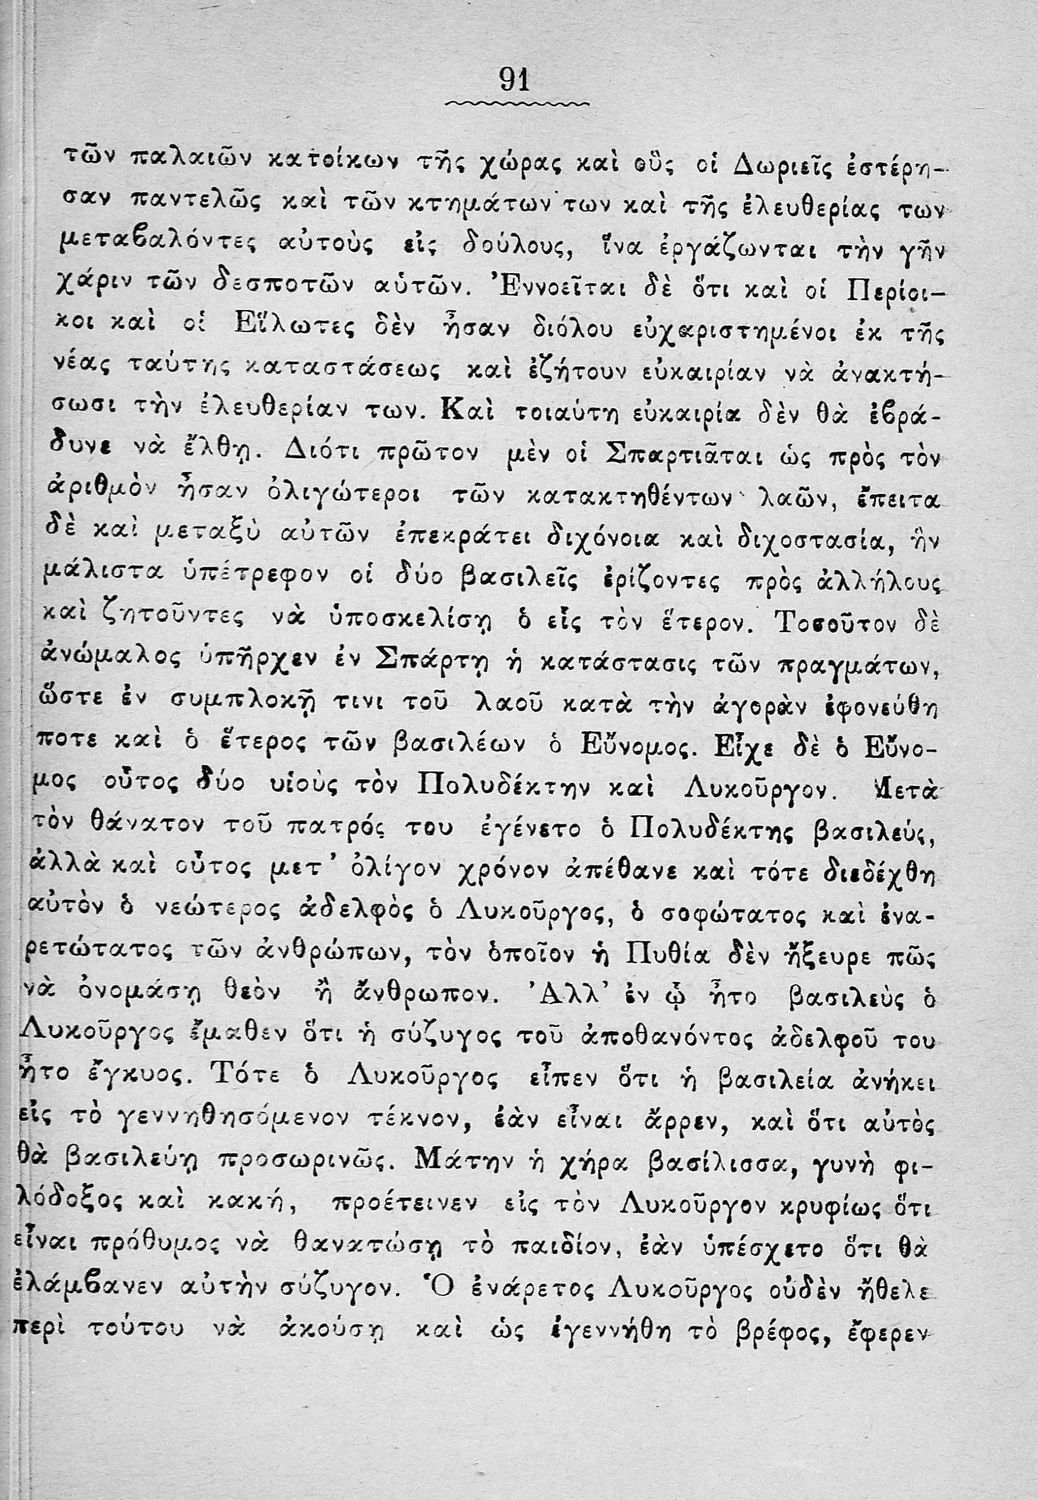 91
τῶν παλαιῶν κατοίκων τῆς χώρας καὶ οὓς οἱ Δωριεῖς ἐστέρη-
σαν παντελῶς καὶ τῶν κτημάτων των καὶ τῆς ἐλευθερίας των
μεταβαλόντες αὐτοὺς εἰς δούλους, ἵνα ἐργάζωνται τὴν γῆν
χάριν τῶν δεσποτῶν αὑτῶν. Ἐννοεῖται δὲ ὅτι καὶ οἱ Περίοι-
κοι καὶ οἱ Εἵλωτες δὲν ἦσαν διόλου εὐχαριστημένοι ἐκ τῆς
νέας ταύτης καταστάσεως καὶ ἐζήτουν εὐκαιρίαν νὰ ἀνακτή-
σωσι τὴν ἐλευθερίαν των. Καὶ τοιαύτη εὐκαιρία δὲν θὰ ἐβρά-
δυνε νὰ ἔλθῃ. Διότι πρῶτον μὲν οἱ Σπαρτιᾶται ὡς πρὸς τὸν
ἀριθμὸν ἦσαν ὀλιγώτεροι τῶν κατακτηθέντων λαῶν, ἔπειτα
δὲ καὶ μεταξὺ αὐτῶν ἐπεκράτει διχόνοια καὶ διχοστασία, ἣν
μάλιστα ὑπέτρεφον οἱ δύο βασιλεῖς ἐρίζοντες πρὸς ἀλλήλους
καὶ ζητοῦντες νὰ ὑποσκελίσῃ ὁ εἷς τὸν ἕτερον. Τοσοῦτον δὲ
ἀνώμαλος ὑπῆρχεν ἐν Σπάρτῃ ἡ κατάστασις τῶν πραγμάτων,
ὥστε ἐν συμπλοκῇ τινι τοῦ λαοῦ κατὰ τὴν ἀγορὰν ἐφονεύθη
ποτε καὶ ὁ ἕτερος τῶν βασιλέων ὁ Εὔνομος. Εἶχε δὲ ὁ Εὔνο-
μος οὗτος δύο υἱοὺς τὸν Πολυδέκτην καὶ Λυκοῦργον. Μετὰ
τὸν θάνατον τοῦ πατρός του ἐγένετο ὁ Πολυδέκτης βασιλεύς,
ἀλλὰ καὶ οὗτος μετ' ὀλίγον χρόνον ἀπέθανε καὶ τότε διεδέχθη
αὐτὸν ὁ νεώτερος ἀδελφὸς ὁ Λυκοῦργος, ὁ σοφώτατος καὶ ἐνα-
ρετώτατος τῶν ἀνθρώπων, τὸν ὁποῖον ἡ Πυθία δὲν ἤξευρε πῶς
νὰ ὀνομάσῃ θεὸν ἢ ἄνθρωπον. Ἀλλ' ἐν ᾧ ἦτο βασιλεὺς ὁ
Λυκοῦργος ἔμαθεν ὅτι ἡ σύζυγος τοῦ ἀποθανόντος ἀδελφοῦ του
ἦτο ἔγκυος. Τότε ὁ Λυκοῦργος εἶπεν ὅτι ἡ βασιλεία ἀνήκει
εἰς τὸ γεννηθησόμενον τέκνον, ἐὰν εἶναι ἄρρεν, καὶ ὅτι αὐτὸς
θὰ βασιλεύῃ προσωρινῶς. Μάτην ἡ χήρα βασίλισσα, γυνὴ φι-
λόδοξος καὶ κακή, προέτεινεν εἰς τὸν Λυκοῦργον κρυφίως ὅτι
εἶναι πρόθυμος νὰ θανατώσῃ τὸ παιδίον, ἐὰν ὑπέσχετο ὅτι θὰ
ἐλάμβανεν αὐτὴν σύζυγον. Ὁ ἐνάρετος Λυκοῦργος οὐδὲν ἤθελε
περὶ τούτου νὰ ἀκούσῃ καὶ ὡς ἐγεννήθη τὸ βρέφος, ἔφερεν